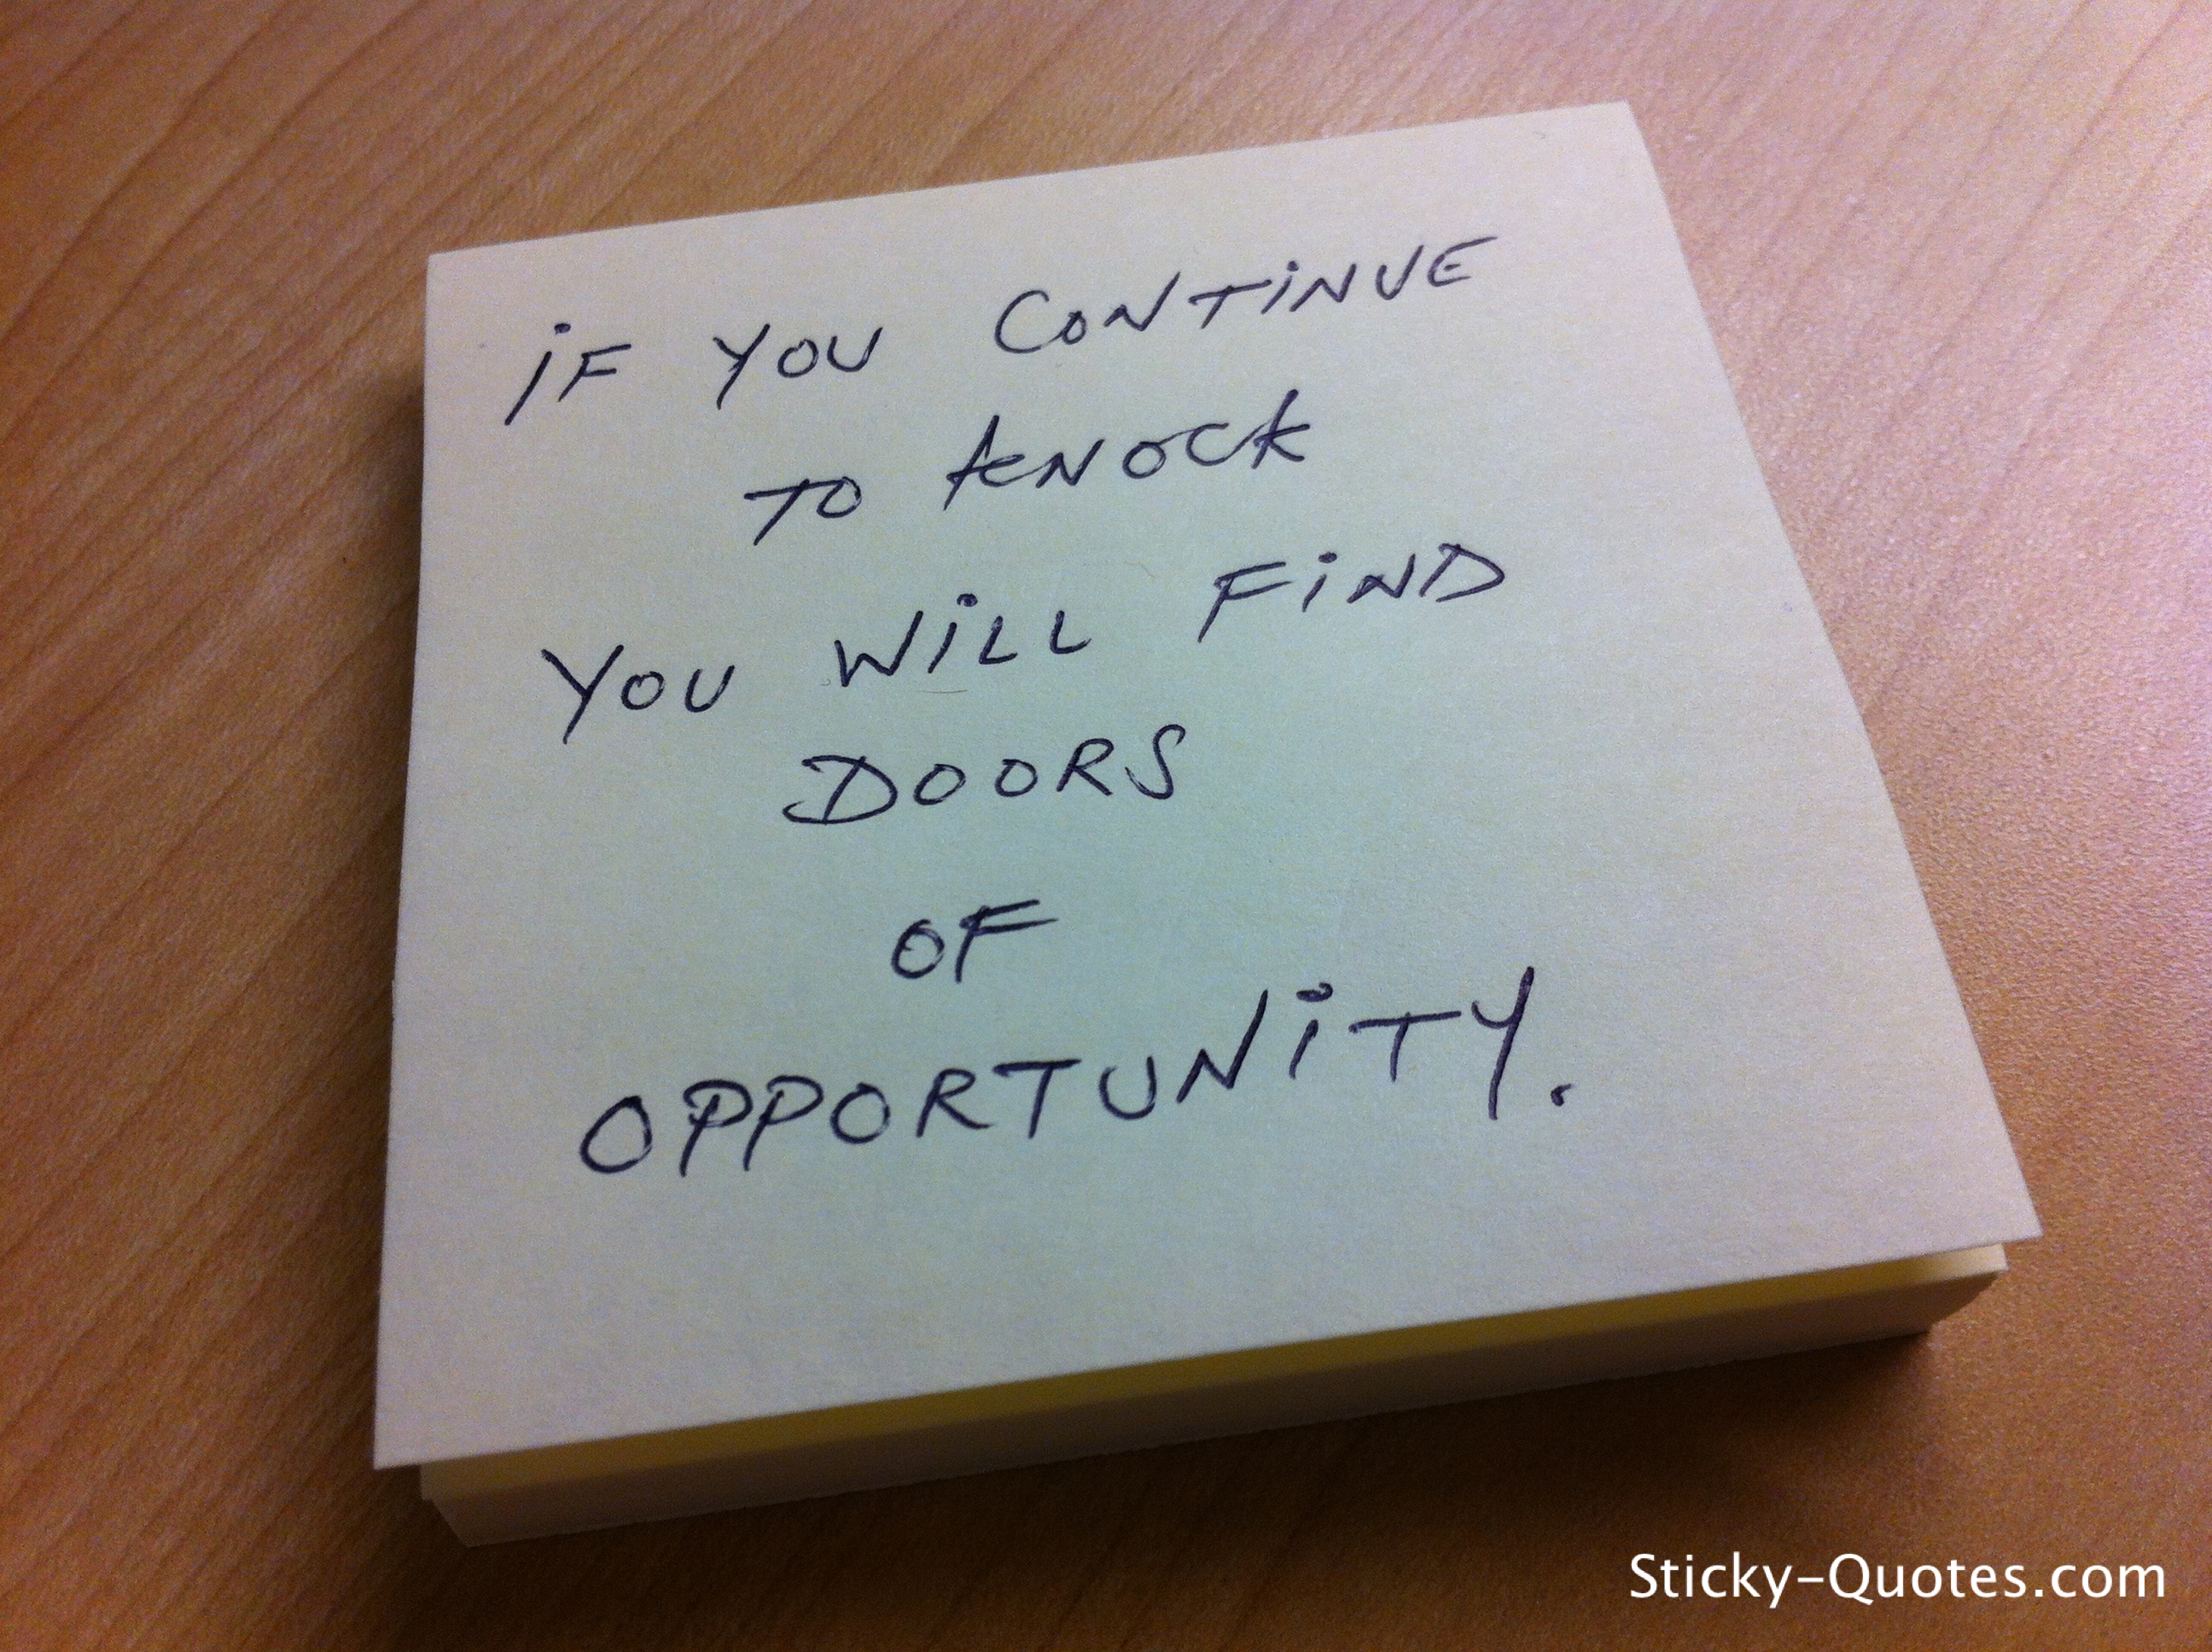 iF YOU CONTiNUE
TO KNOCK
YOU WiLL FiND
DOORS
OF
OPPORTUNiTY.
Sticky-Quotes.com